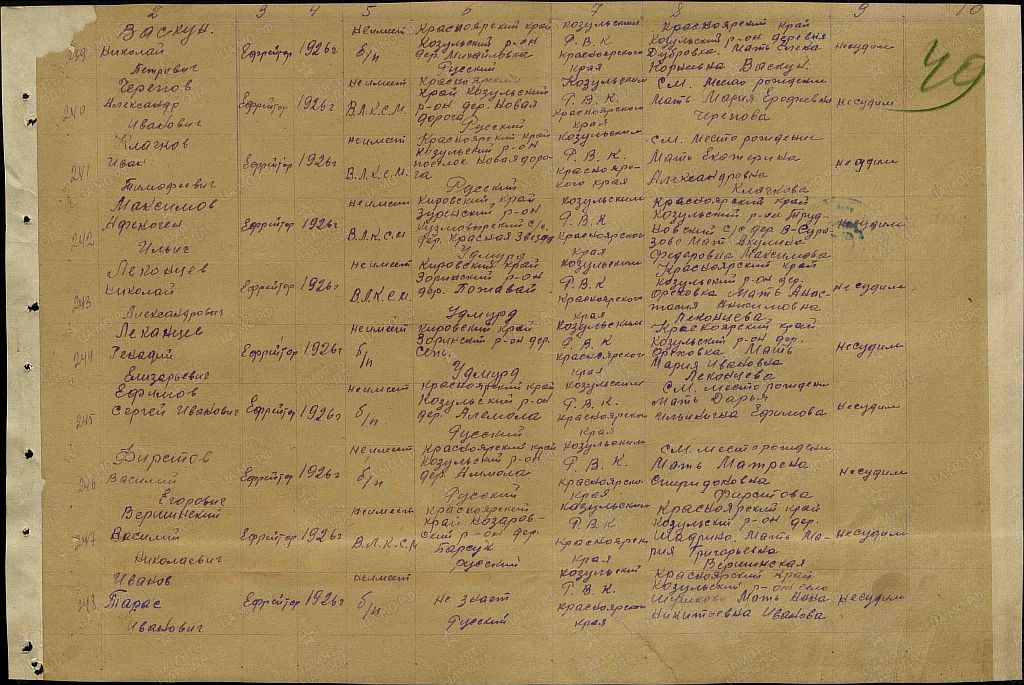 2 3 4 5 6 7 8 9 10
49
Васкун. неимеет Красноярский край Козульским Красноярский край
239 Николай Ефрейтор 1926г б/п Козульский р-он Р.В.К Козульский р-он деревня несудим
дер. Михайловка Красноярского Дубровка Мать Елена
Петрович Русский края Корневна Васкун.
Черепов неимеет Красноярский Козульским См. место рождения
240 Александр Ефрейтор 1926г В.Л.К.С.М. край Козульский Р.В.К. Мать Мария Ерофеевна несудим
р-он дер. Новая Красноярского Черепова
Иванович дорога Русский края
Клачков неимеет Красноярский край Козульским См. место рождение
241 Иван Ефрейтор 1926г В.Л.К.С.М. Козульский р-он Р.В.К. Мать Екатерина несудим
поселок Новая доро- Красноярс- Александровна
Тимофеевич га Русский кого края Клачкова
Максимов неимеет Кировский край Козульским Красноярский край
242 Афиноген Ефрейтор 1926г В.Л.К.С.М Зуринский р-он Р.В.К Козульский р-он Труд- несудим
с/с. Красноярского новский с/с дер.
дер. Красная Звезда зово Мат Акулина
Ильич Удмурд края Федоровна Максимова
Леконцев неимеет Кировский край Козульским Красноярский край
243 Николай Ефрейтор 1926г В.Л.К.С.М. Зоринский р-он Р.В.К Козульский р-он дер. несудим
дер. Пожавай Красноярского Ореховка Мать Анас-
Александрович Удмурд края тасия Анисимовна
Леконцева
Леканцев неимеет Кировский край Козульским Красноярский край
244 Генадий Ефрейтор 1926г б/п Зоринский р-он дер. Р.В.К Козульский р-он дер. несудим
Сепь. Красноярского Ореховка Мать
Елизарьевич Удмурд края Мария Ивановна
Леконцева
Ефимов неимеет Красноярский край Козульским См. место рождени
245 Сергей Иванович Ефрейтор 1926г б/п Козульский р-он Р.В.К. Мать Дарья несудим
дер. Красноярского Ильинична Ефимова
Русский края
Фирстов неимеет Красноярский край Козульским См. место рождени
246 Василий Ефрейтор 1926г б/п Козульский р-он Р.В.К. Мать Матрена несудим
дер. Красноярского Спиридоновна
Егорович Русский края Фирстова
Вершинский неимеет Красноярский Козульским Красноярский край
247 Василий Ефрейтор 1926г В.Л.К.С.М край Назаров- Р.В.К Козульский р-он дер. несудим
ский р-он дер. Красноярского Шадрино. Мать Ма-
Николаевич Барсук края рия Григорьевна
Русский Вершинская
Иванов неимеет Козульский Красноярский край
248 Тарас Ефрейтор 1926г б/п не знает Р.В.К. Козульский р-он село несудим
Красноярского Мать Анна
Иванович Русский края Никитьевна Иванова